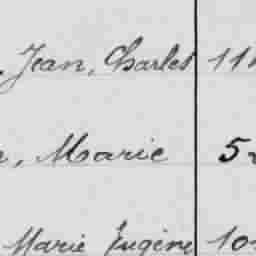 , Jean, Charles 11
, Marie 5
Marie Eugène 10